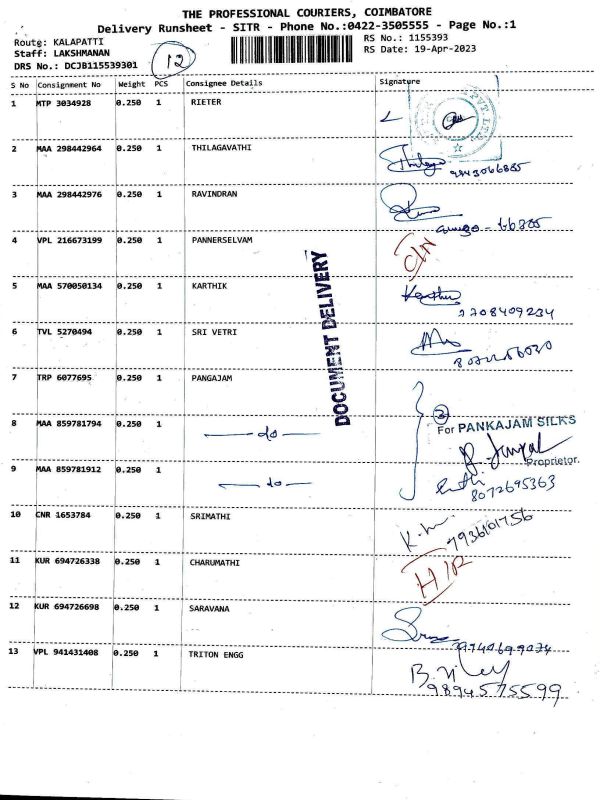 THE PROFESSIONAL COURIERS, COIMBATORE
Delivery Runsheet - SITR - Phone No.:0422-3505555 - Page No.:1
Route: KALAPATTI RS No.: 1155393
Staff: LAKSHMANAN RS Date: 19-Apr-2023
DRS No.: DCJB115539301 12
S No Consignment No Weight PCS Consignee Details Signature
1 MTP 3034928 0.250 1 RIETER
PVT. LTD.
2 MAA 298442964 0.250 1 THILAGAVATHI Thilaga
3 MAA 298442976 0.250 1 RAVINDRAN
4 VPL 216673199 0.250 1 PANNERSELVAM
5 MAA 570050134 0.250 1 KARTHIK Karthik
7708409234
6 TVL 5270494 0.250 1 SRI VETRI
DOCUMENT DELIVERY
7 TRP 6077695 0.250 1 PANGAJAM
3
8 MAA 859781794 0.250 1 — do — For PANKAJAM SILKS
Proprietor.
9 MAA 859781912 0.250 1 — do — 8072695363
10 CNR 1653784 0.250 1 SRIMATHI 7936101756
11 KUR 694726338 0.250 1 CHARUMATHI
12 KUR 694726698 0.250 1 SARAVANA
13 VPL 941431408 0.250 1 TRITON ENGG
9894575599